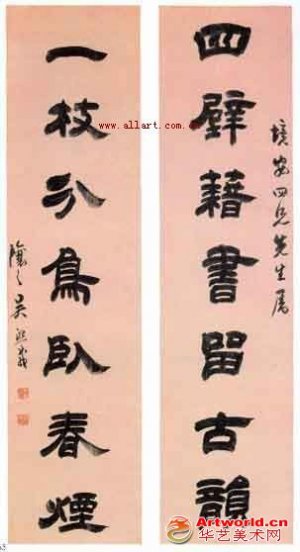 境安四兄先生属
四壁藉書留古韻
一枝分鳥臥春煙
讓之吳熙載
www.allart.com.cn
Artworld.cn
华艺美术网